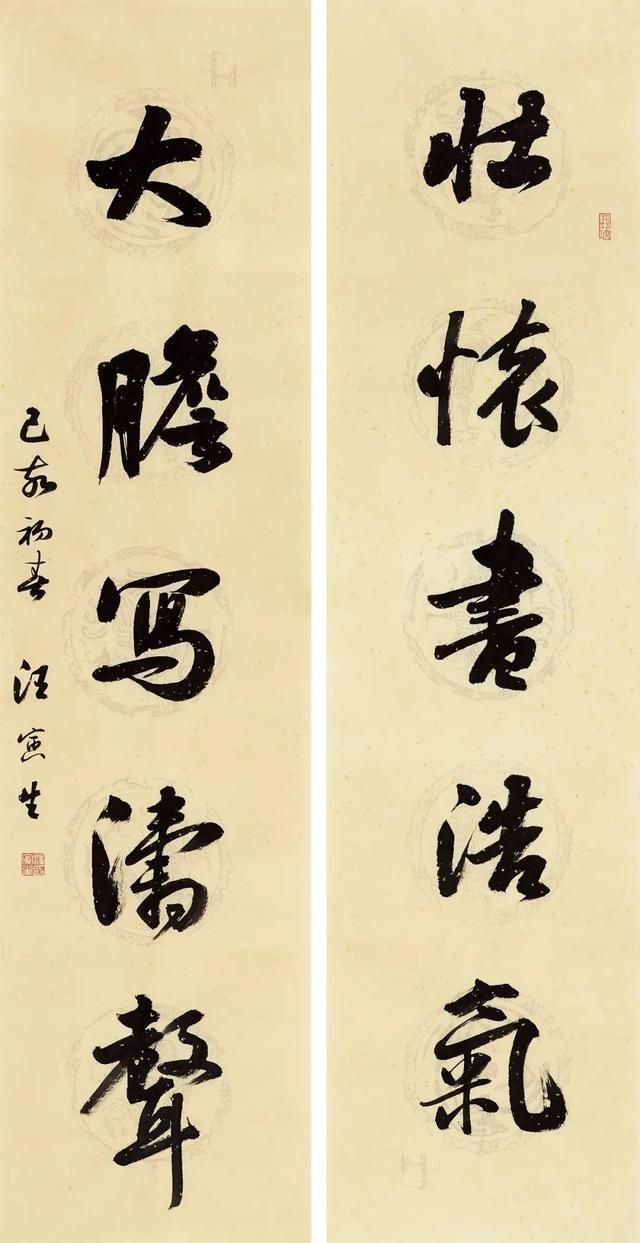 壮懷書浩氣
大膽写濤聲
己亥初春 汪寅生